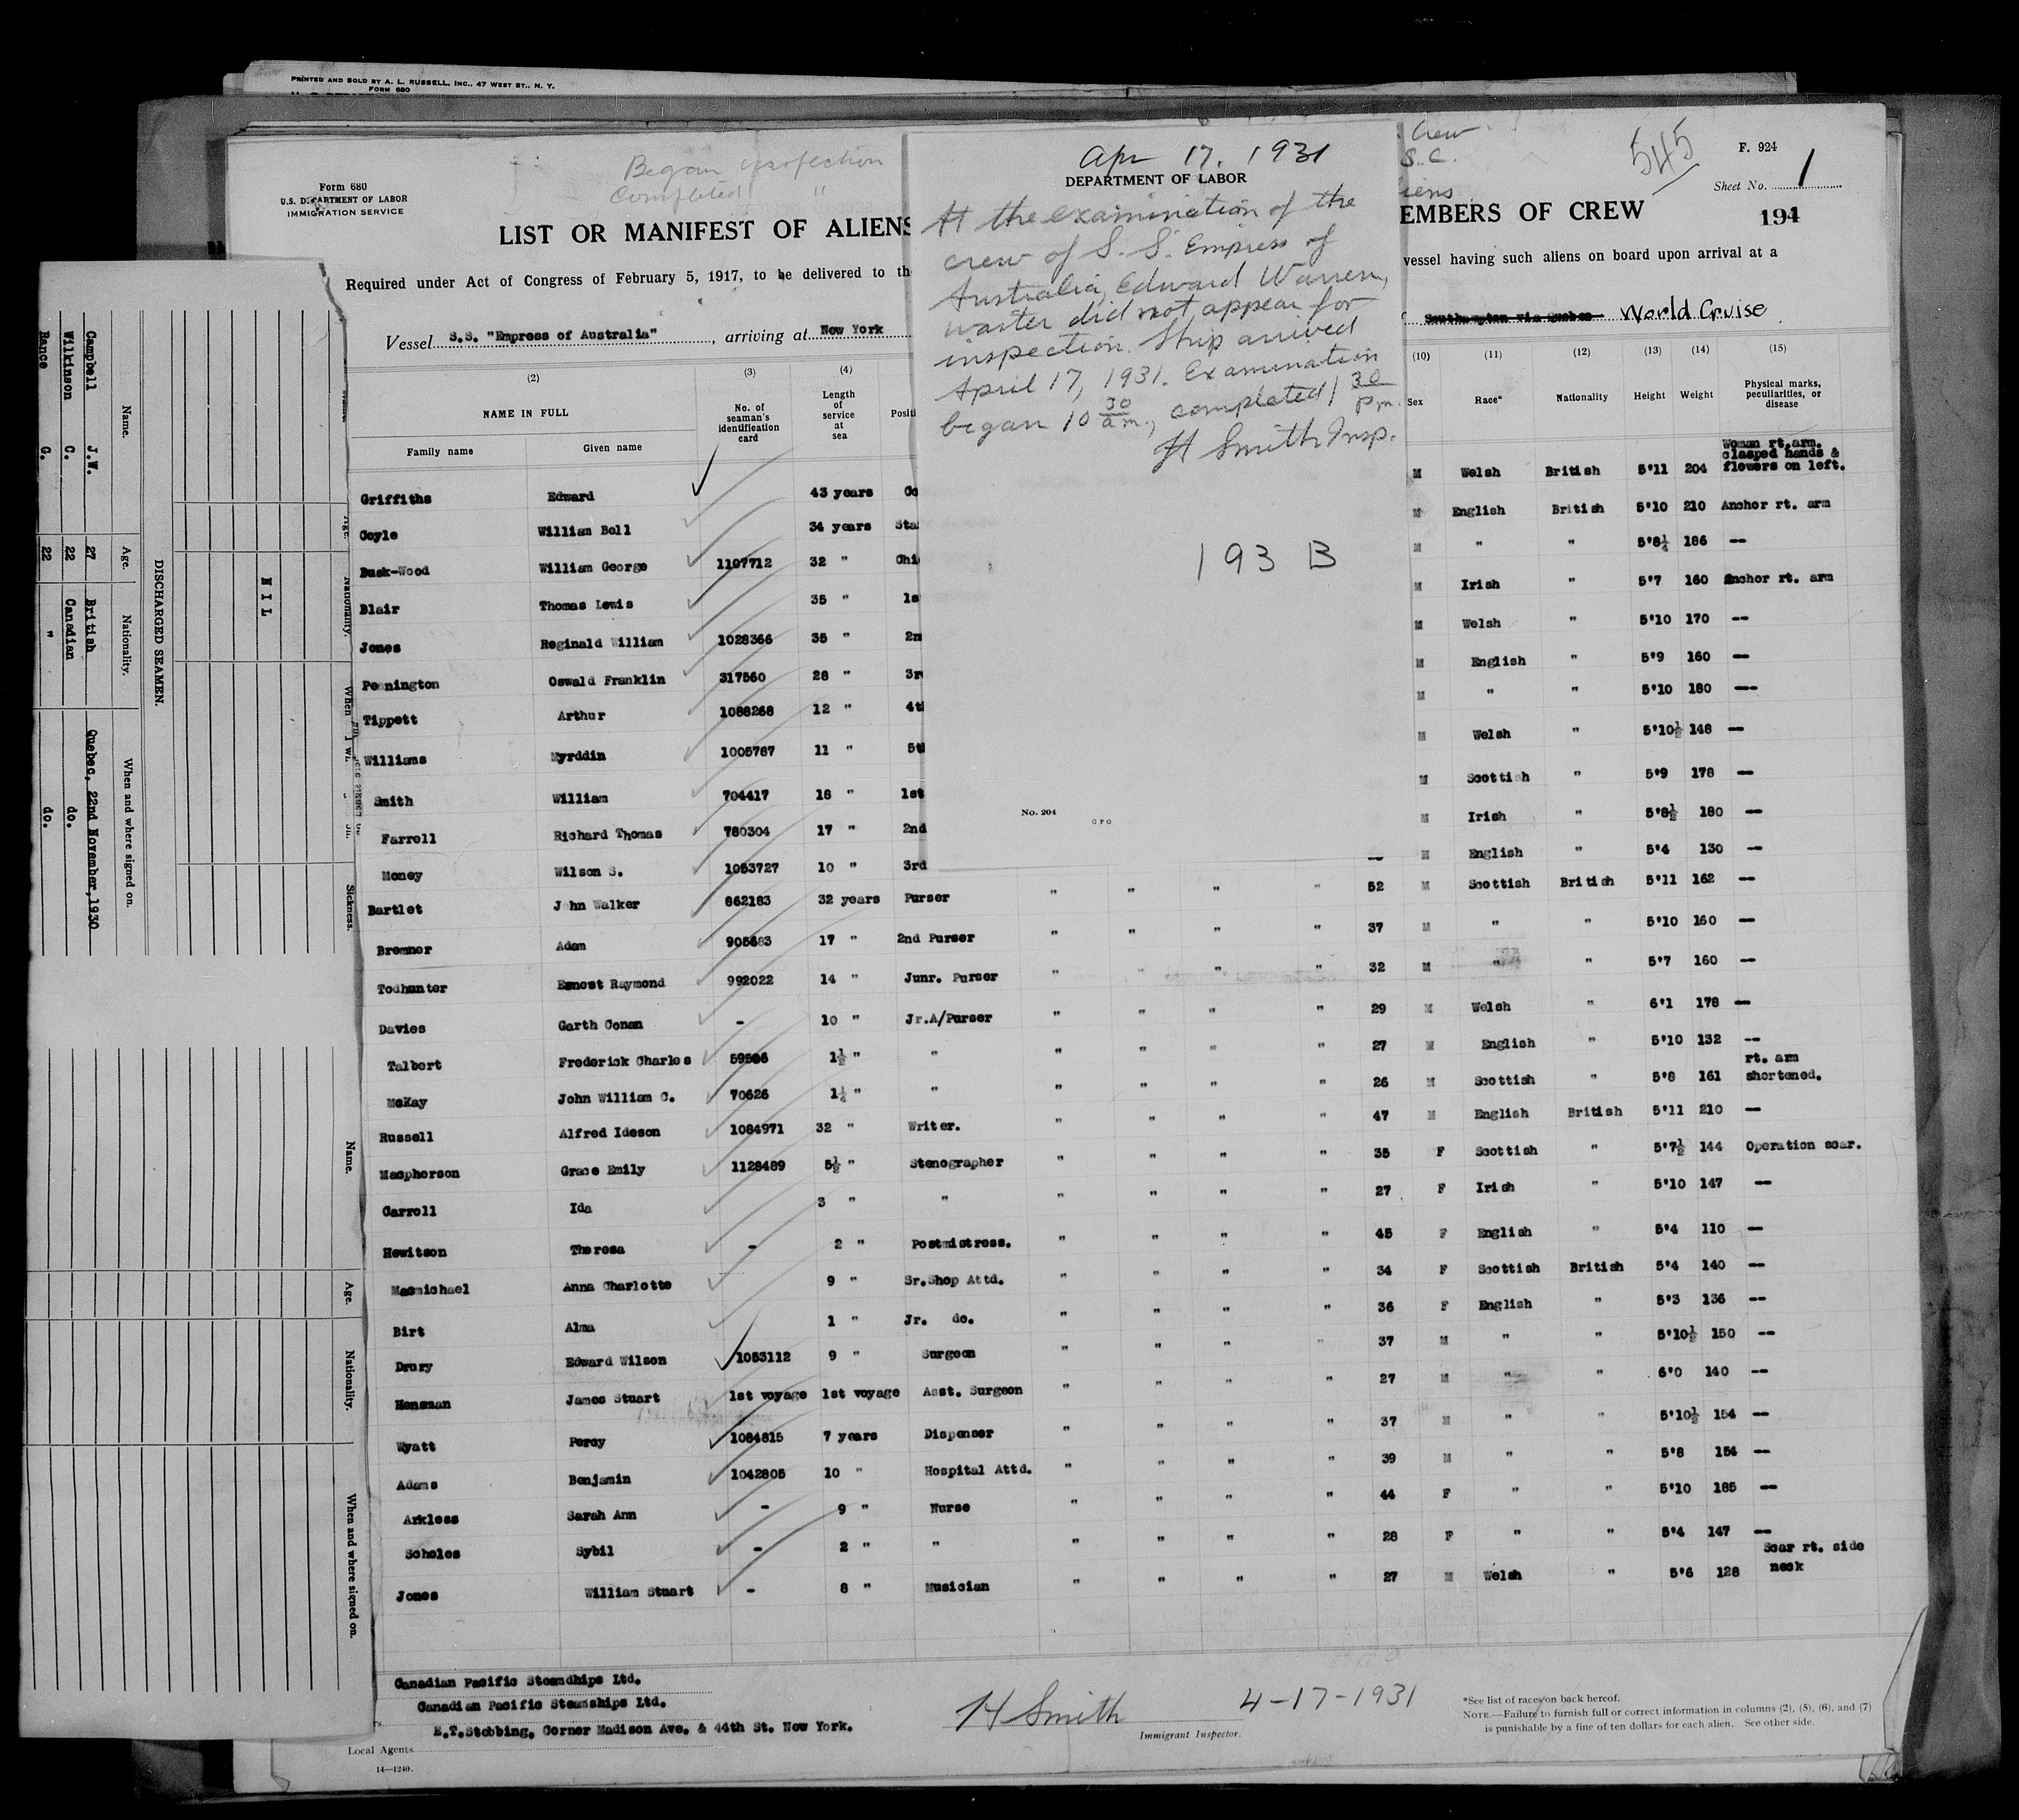 PRINTED AND SOLD BY A. L. RUSSELL, INC., 47 WEST ST., N. Y.
FORM 680
Form 680
U.S. DEPARTMENT OF LABOR
IMMIGRATION SERVICE
Began inspection
Completed "
LIST OR MANIFEST OF ALIENS
Required under Act of Congress of February 5, 1917, to be delivered to th
Vessel S.S. "Empress of Australia", arriving at New York
Crew
S.C.
iens
545
F. 924
Sheet No. 1
EMBERS OF CREW
1931
vessel having such aliens on board upon arrival at a
Southampton via Quebec World Cruise
Apr 17, 1931
DEPARTMENT OF LABOR
At the examination of the
crew of S.S. Empress of
Australia, Edward Warren,
waiter did not appear for
inspection. Ship arrived
April 17, 1931. Examination
began 10 30 am, completed 1 30 pm.
H Smith Insp.
193 B
No. 204
GPO
(2) (3) (4) (10) (11) (12) (13) (14) (15)
NAME IN FULL
Family name Given name
No. of seaman's identification card
Length of service at sea
Positi
Sex Race* Nationality Height Weight Physical marks, peculiarities, or disease
Griffiths Edward 43 years Co M Welsh British 5'11 204 Woman rt.arm. clasped hands & flowers on left.
Coyle William Bell 34 years Sta M English British 5'10 210 Anchor rt. arm
Busk-Wood William George 1107712 32 " Chi M " " 5'8¼ 186 --
Blair Thomas Lewis 35 " 1s M Irish " 5'7 160 Anchor rt. arm
Jones Reginald William 1028366 35 " 2n M Welsh " 5'10 170 --
Pennington Oswald Franklin 317560 28 " 3r M English " 5'9 160 --
Tippett Arthur 1088268 12 " 4t M " " 5'10 180 --
Williams Myrddin 1005787 11 " 5t M Welsh " 5'10½ 148 --
Smith William 704417 18 " 1st M Scottish " 5'9 178 --
Farrell Richard Thomas 780304 17 " 2nd M Irish " 5'8½ 180 --
Money Wilson S. 1053727 10 " 3rd M English " 5'4 130 --
Bartlet John Walker 862183 32 years Purser " " " " 52 M Scottish British 5'11 162 --
Bremner Adam 905683 17 " 2nd Purser " " " " 37 M " " 5'10 160 --
Todhunter Ernest Raymond 992022 14 " Junr. Purser " " " " 32 M " " 5'7 160 --
Davies Garth Conan - 10 " Jr.A/Purser " " " " 29 M Welsh " 6'1 178 --
Talbert Frederick Charles 59586 1½ " " " " " " 27 M English " 5'10 132 --
McKay John William C. 70626 1¼ " " " " " " 26 M Scottish " 5'8 161 rt. arm shortened.
Russell Alfred Ideson 1084971 32 " Writer. " " " " 47 M English British 5'11 210 --
Macpherson Grace Emily 1128489 5½ " Stenographer " " " " 35 F Scottish " 5'7½ 144 Operation scar.
Carroll Ida 3 " " " " " " 27 F Irish " 5'10 147 --
Hewitson Theresa - 2 " Postmistress. " " " " 45 F English " 5'4 110 --
Macmichael Anna Charlotte 9 " Sr.Shop Attd. " " " " 34 F Scottish British 5'4 140 --
Birt Alma 1 " Jr. do. " " " " 36 F English " 5'3 136 --
Drury Edward Wilson 1053112 9 " Surgeon " " " " 37 M " " 5'10½ 150 --
Hensman James Stuart 1st voyage 1st voyage Asst. Surgeon " " " " 27 M " " 6'0 140 --
Wyatt Percy 1084815 7 years Dispenser " " " " 37 M " " 5'10½ 154 --
Adams Benjamin 1042805 10 " Hospital Attd. " " " " 39 M " " 5'8 154 --
Arkless Sarah Ann - 9 " Nurse " " " " 44 F " " 5'10 185 --
Scholes Sybil - 2 " " " " " " 28 F " " 5'4 147 --
Jones William Stuart - 8 " Musician " " " " 27 M Welsh " 5'6 128 Scar rt. side neck
Canadian Pacific Steamships Ltd.
Canadian Pacific Steamships Ltd.
E.T.Stebbing, Corner Madison Ave. & 44th St. New York.
Local Agents
14—1240.
H Smith
Immigrant Inspector.
4-17-1931
*See list of races on back hereof.
NOTE.—Failure to furnish full or correct information in columns (2), (5), (6), and (7)
is punishable by a fine of ten dollars for each alien. See other side.
DISCHARGED SEAMEN.
Name. Age. Nationality. When and where signed on.
Campbell J.W. 27 British Quebec, 22nd November, 1930
Wilkinson C. 22 Canadian do.
Rance G. 22 " do.
NIL
Sickness.
Name. Age. Nationality. When and where signed on.